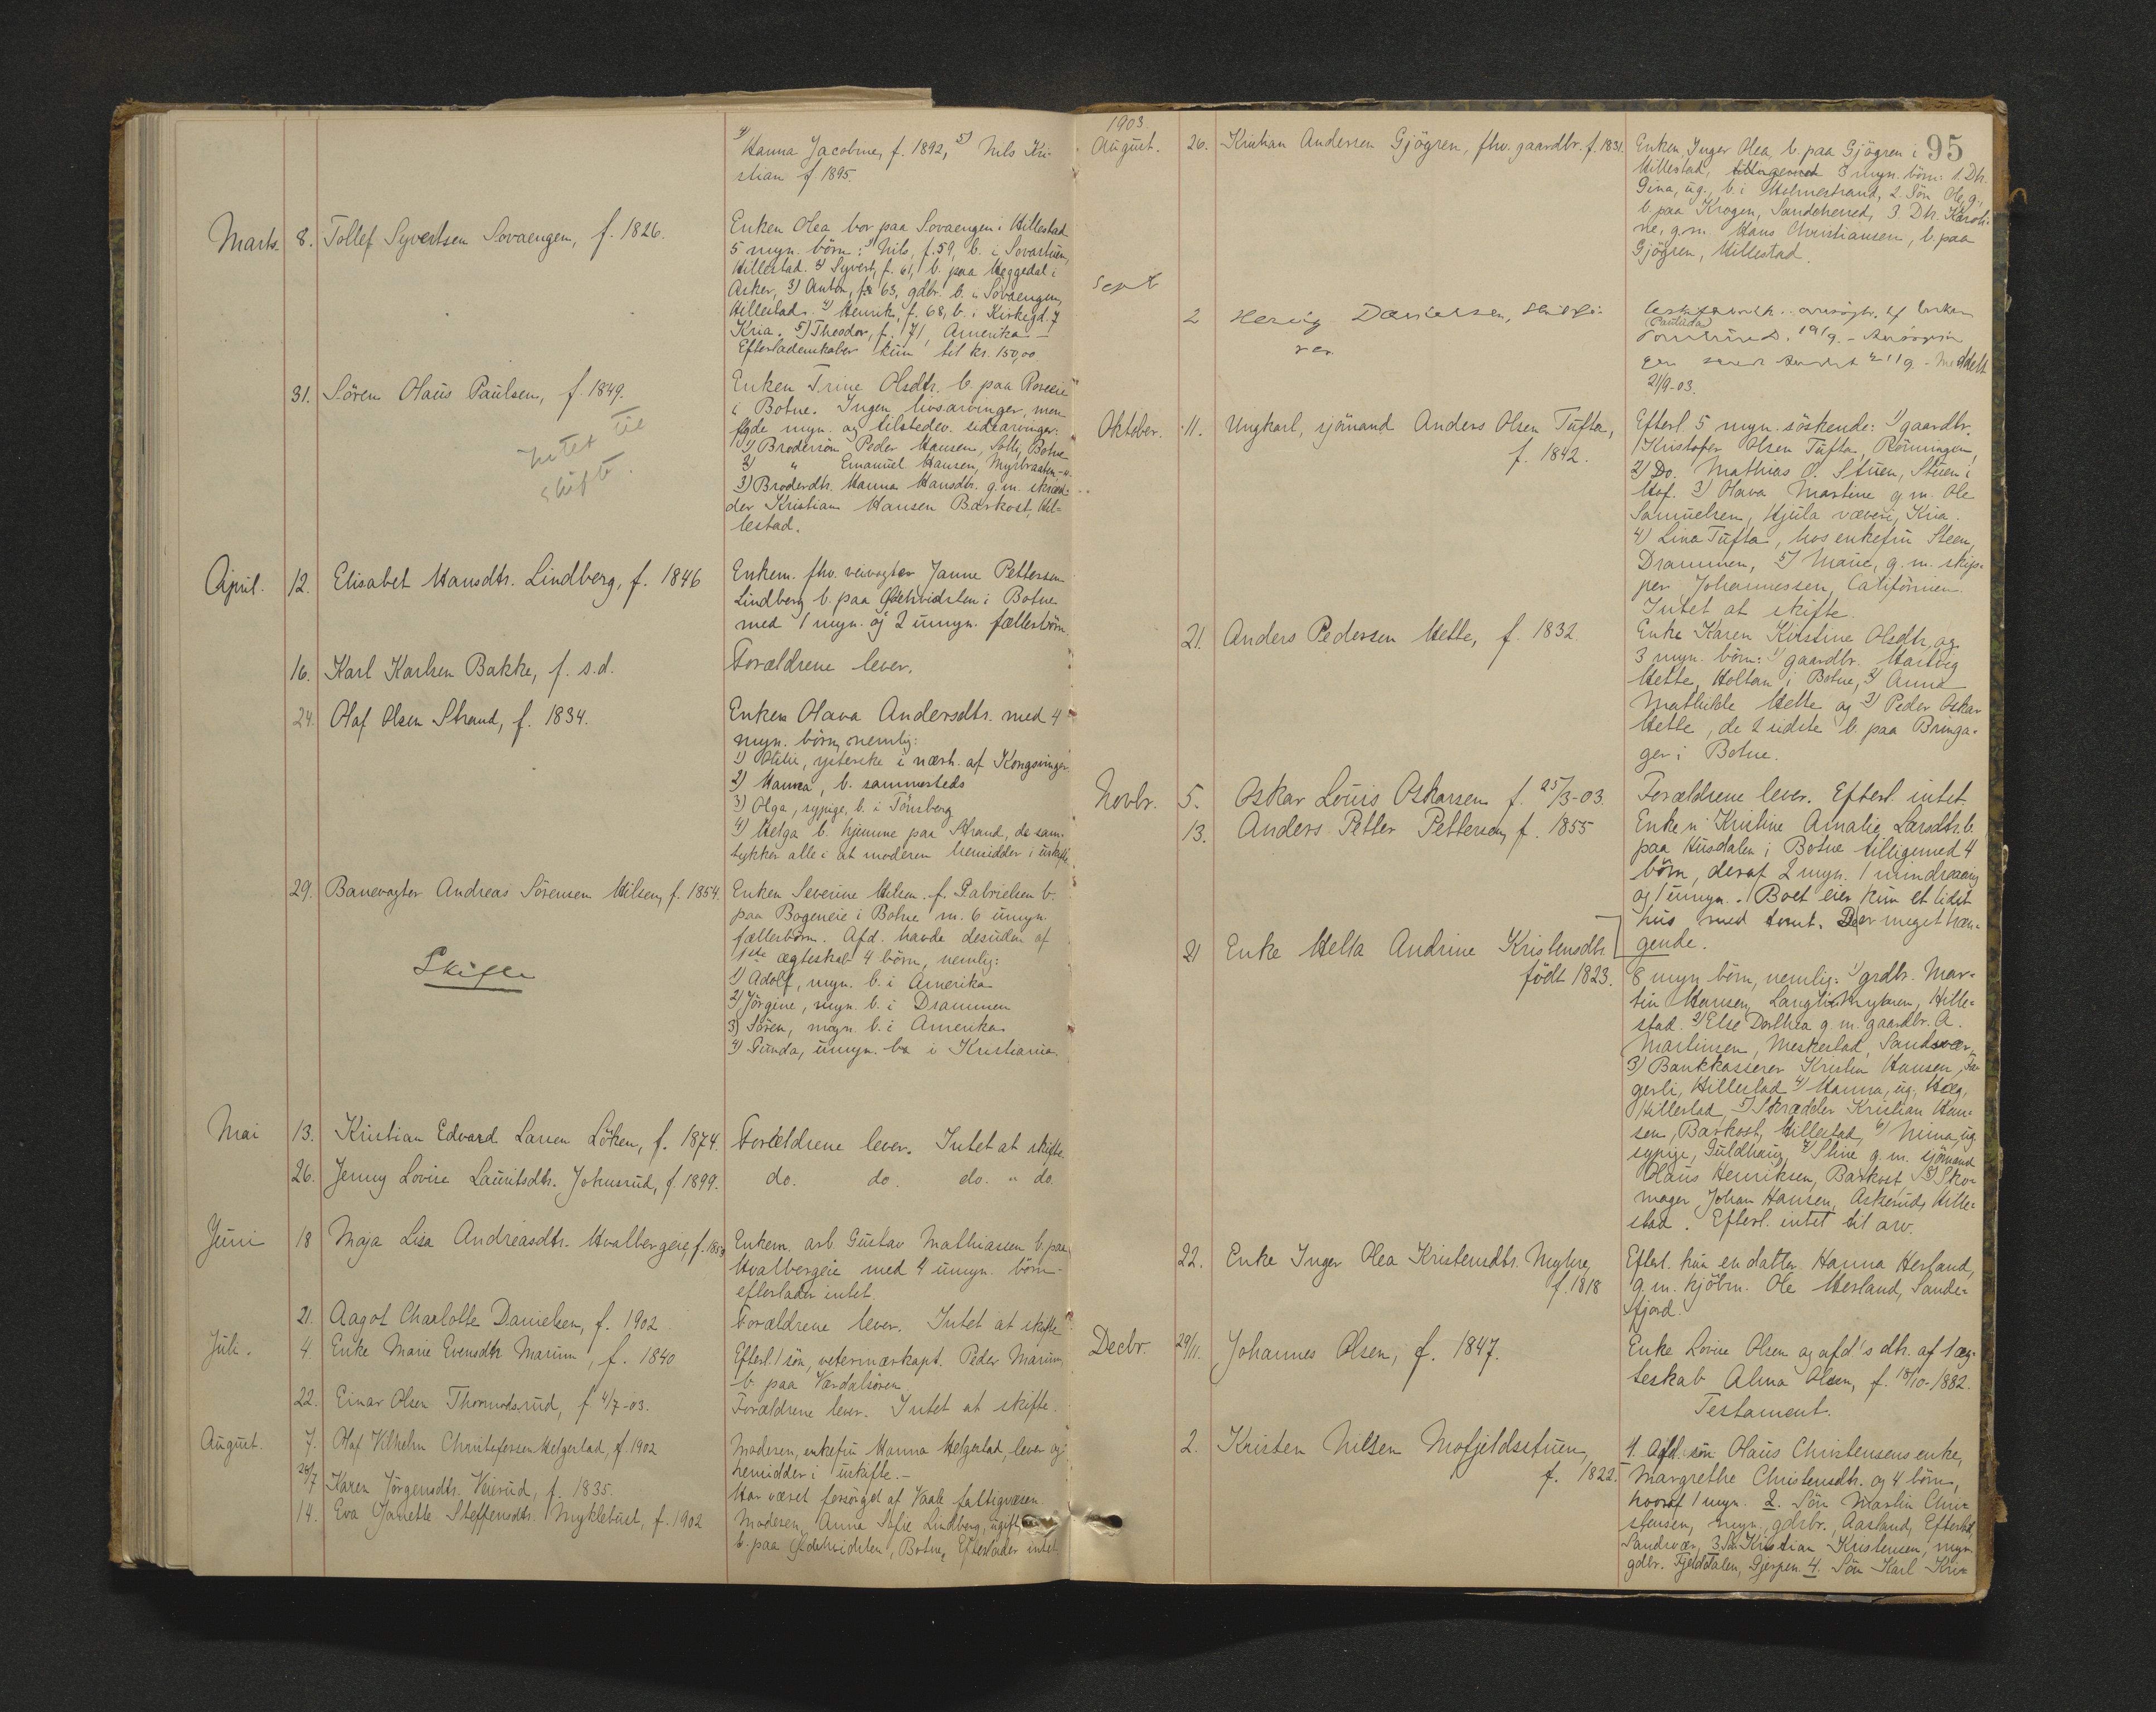 4) Hanna Jacobine, f. 1892, 5) Nils Kri-
stian f. 1895.
Marts. 8. Tollef Syvertsen Sovaengen, f. 1826.
Enken Olea bor paa Sovaengen i Hillestad
5 myn. börn: 1) Nils, f. 59, b. i Sovastuen,
Hillestad. 2) Syvert, f. 61, b. paa Heggedal i
Asker, 3) Anton, f. 63, gdbr. b. i Sovaengen,
Hillestad. 4) Henrik, f. 68, b. i Kirkegd. 7
Kria. 5) Theodor, f. 71, Amerika —
Efterladenskaber kun til kr. 150,00
31. Sören Olaus Paulsen, f. 1849.
Intet til
skifte.
Enken Trine Olsdtr. b. paa
i Botne. Ingen livsarvinger, men
flgde myn. og tilstedev. udearvinger:
1) Brodersön Peder Hansen, Solli, Botne
2) " Emanuel Hansen, Myrbraaten -"-
3) Broderdtr. Hanna Hansdtr. g. m. skræd-
der Kristian Hansen Barkost, Hil-
lestad.
April. 12. Elisabet Hansdtr. Lindberg, f. 1846
Enkem. fhv. veivogter Janne Pettersen
Lindberg b. paa i Botne
med 1 myn. og 2 umyn. fællesbörn.
16. Karl Karlsen Bakke, f. s.d.
Forældrene lever.
24. Olaf Olsen Strand, f. 1834.
Enken Olava Andersdtr. med 4
myn. börn, nemlig:
1) Otilie, i nærh. af Kongsvinger
2) Hanna, b. sammesteds
3) Olga, sypige, b. i Tönsberg
4) Helga b. hjemme paa Strand, de sam-
tykker alle i at moderen hensidder i uskifte
29. Banevogter Andreas Sörensen Hilsen, f. 1854.
Skifte
Enken Severine Hilsen f. Gabrielsen b.
paa Bogeneie i Botne m. 6 umyn.
fællesbörn. Afd. havde desuden af
1ste ægteskab 4 börn, nemlig:
1) Adolf, myn. b. i Amerika
2) Jörgine, myn. b. i Drammen
3) Sören, myn. b. i Amerika
4) Gunda, umyn. b. i Kristiania.
Mai 13. Kristian Edvard Larsen Löken, f. 1874.
Forældrene lever. Intet at skifte.
26. Jenny Lovise Lauritsdtr. Johnsrud, f. 1899.
do. do. do. " do.
Juni 18 Maja Lisa Andreasdtr. Hvalbergeie, f. 1853
Enkem. arb. Gustav Mathiassen b. paa
Hvalbergeie med 4 umyn. börn -
efterlader intet.
21. Aagot Charlotte Danielsen, f. 1902.
Forældrene lever. Intet at skifte
Juli. 4. Enke Marie Evensdtr. Marum, f. 1840
Efterl. 1 sön, veterinærkapt. Peder Marum,
b. paa Værdalsören
22. Einar Olsen Thormodsrud, f. 4/7-03.
Forældrene lever. Intet at skifte.
August. 7. Olaf Vilhelm Christofersen Helgestad, f. 1902
Moderen, enkefru Hanna Helgestad, lever og
hensidder i uskifte. -
28/7 Karen Jörgensdtr. Veierud, f. 1835.
Har været forsörget af Vaale fattigvæsen
14. Eva Janette Steffensdtr. Myklebust, f. 1902
Moderen, Anna Sofie Lindberg, ugift,
b. paa Botne, Efterlader intet.
95
1903
August. 26. Kristian Andersen Gjögren, fhv. gaardbr. f. 1831.
Enken, Inger Olea, b. paa Gjögren i
Hillestad, 3 myn. börn: 1. Dtr.
Gina, ug., b. i Holmestrand, 2. Sön Ole, g.,
b. paa Krogen, Sandeherred, 3. Dtr. Karoli-
ne, g. m. Hans Christiansen, b. paa
Gjögren, Hillestad.
Sept
2 Herbig Danielsen,
(Paulida)
19/9. -
21/9 - Meddelt
21/9-03.
Oktober. 11. Ungkarl, sjömand Anders Olsen Tufta,
f. 1842.
Efterl. 5 myn. söskende: 1) gaardbr.
Kristofer Olsen Tufta, Rönningen,
2) Do. Mathias O. Stuen, Stuen i
Hof. 3) Olava Martine g. m. Ole
Samuelsen, Hjula væveri, Kria.
4) Lina Tufta, hos enkefru Steen,
Drammen, 5) Marie, g. m. skip-
per Johannessen, Californien.
Intet at skifte.
21. Anders Pedersen Hette, f. 1832.
Enke Karen Kirstine Olsdtr. og
3 myn. börn: 1) gaardbr. Hartvig
Hette, Holtan i Botne, 2) Anna
Mathilde Hette og 3) Peder Oskar
Hette, de 2 sidste b. paa Bringa-
ger i Botne.
Novbr. 5. Oskar Louis Oskarsen f. 25/3-03.
Forældrene lever. Efterl. intet.
13. Anders Petter Pettersen, f. 1855
Enken Kristine Amalie Larsdtr. b.
paa Husdalen i Botne tilligemed 4
börn, deraf 2 myn. 1 mindreaarig
og 1 umyn. Boet eier kun et lidet
hus med tomt. Der meget træn-
gende.
21 Enke Hella Andrine Kristensdtr.
födt 1823.
8 myn. börn, nemlig: 1) grdbr. Mar-
tin Hansen, Hille-
stad. 2) Else Dorthea g. m. gaardbr. A.
Martinsen, Meskestad, Sandsvær,
3) Bankkasserer Kristen Hansen, Fa-
gerli, Hillestad 4) Hanna, ug., Hæg,
Hillestad, 5) Skrædder Kristian Han-
sen, Barkost, Hillestad, 6) Nina, ug.
sypige, Guldhaug, 7) Stine g. m. sjömand
Olaus Henriksen, Barkost 8) Sko-
mager Johan Hansen, Askerud, Hille-
stad. Efterl. intet til arv.
22. Enke Inger Olea Kristensdtr. Myhre,
f. 1818
Efterl. kun en datter Hanna Herland,
g. m. kjöbm. Ole Herland, Sande-
fjord.
Decbr. 29/11. Johannes Olsen, f. 1847.
Enke Lovise Olsen og afd's dtr. af 1 æg-
teskab Alma Olsen, f. 18/10-1882.
Testament.
2. Kristen Nilsen Mofjeldsstuen,
f. 1822.
1. Afd. sön Olaus Christensens enke,
Margrethe Christensdtr. og 4 börn,
hvoraf 1 myn. 2. Sön Martin Chri-
stensen, myn., gdbr., Aasland, Efteröd,
Sandsvær, 3. Sön Kristian Kristensen, myn.
gdbr. Fjelddalen, Gjerpen. 4. Sön Karl Kri-